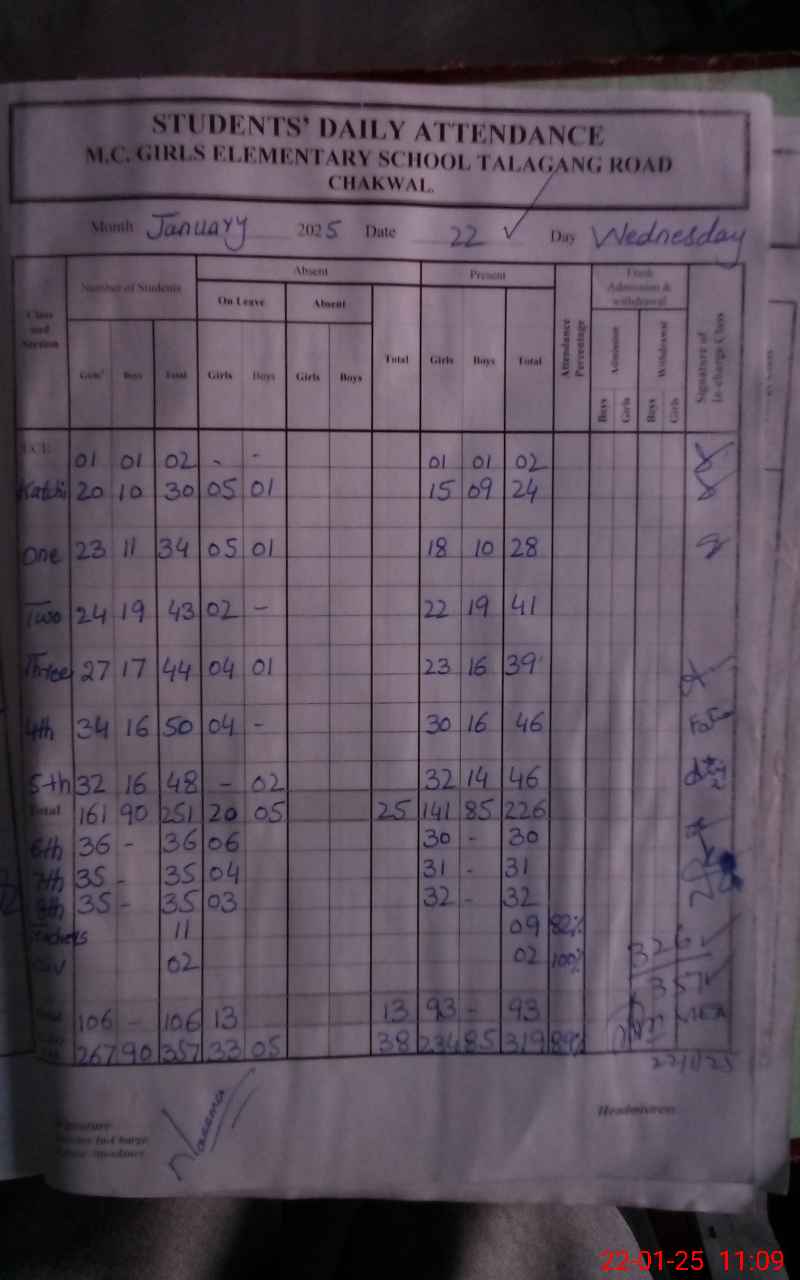 STUDENTS' DAILY ATTENDANCE
M.C. GIRLS ELEMENTARY SCHOOL TALAGANG ROAD
CHAKWAL.
Month January 2025 Date 22 Day Wednesday
Class and Section Number of Students Absent Present Attendance Percentage Fresh Admission & withdrawal Signature of In-charge Class
On Leave Absent Total Girls Boys Total Admission Withdrawal
Girls Boys Total Girls Boys Girls Boys Boys Girls Boys Girls
01 01 02 - - 01 01 02
Katchi 20 10 30 05 01 15 09 24
One 23 11 34 05 01 18 10 28
Two 24 19 43 02 - 22 19 41
Three 27 17 44 04 01 23 16 39
4th 34 16 50 04 - 30 16 46
5th 32 16 48 - 02 32 14 46
Total 161 90 251 20 05 25 141 85 226
6th 36 - 36 06 30 - 30
7th 35 - 35 04 31 - 31
8th 35 - 35 03 32 - 32
Teachers 11 09 82%
02 02 100% 326
357
106 - 106 13 13 93 - 93
267 90 357 33 05 38 234 85 319 89%
22/1/25
Signature Headmistress
Naeema
22-01-25 11:09